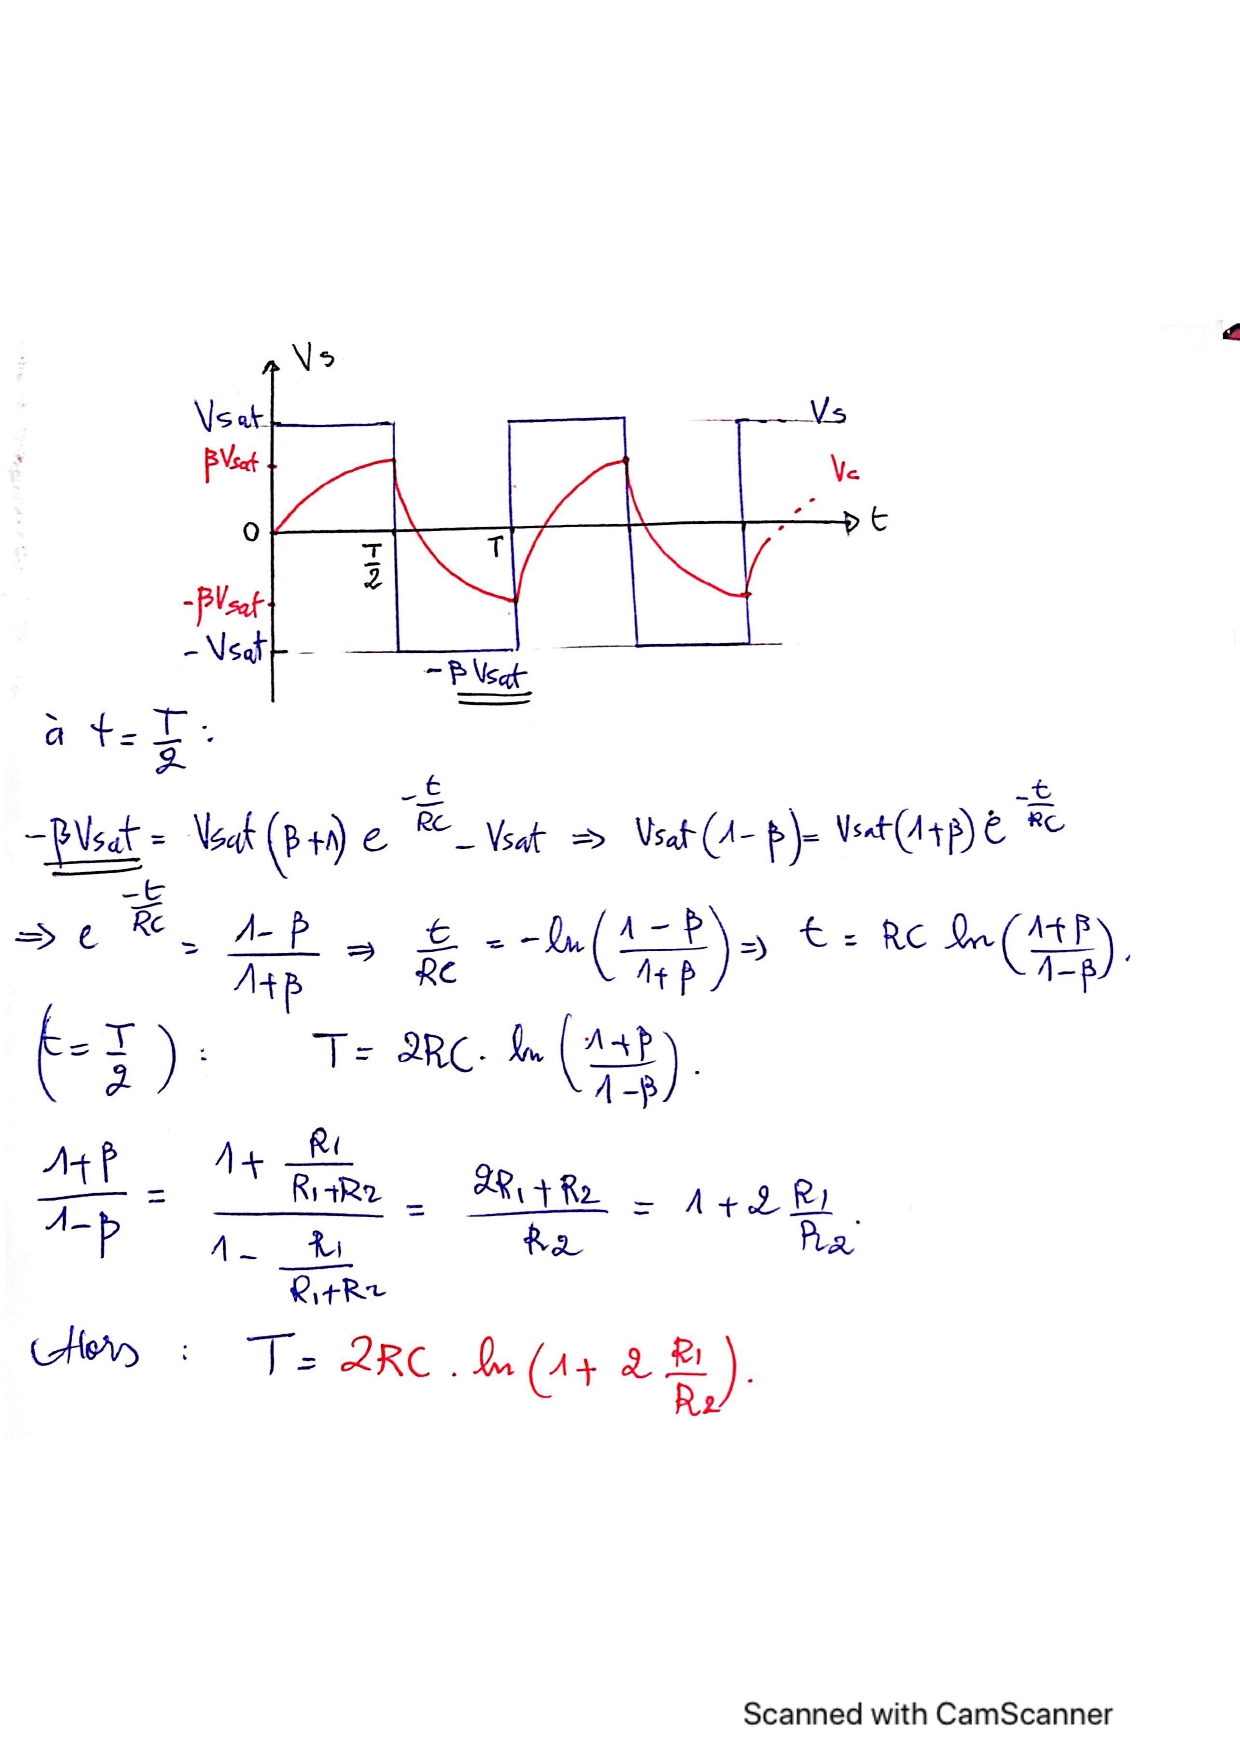 Vs
Vsat
Vs
βVsat
Vc
0
t
T/2
T
-βVsat
-Vsat
-βVsat
à t = T/2 :
-βVsat = Vsat(β+1) e^(-t/RC) - Vsat ⇒ Vsat(1-β) = Vsat(1+β) e^(-t/RC)
⇒ e^(-t/RC) = (1-β)/(1+β) ⇒ t/RC = -ln((1-β)/(1+β)) ⇒ t = RC ln((1+β)/(1-β)).
(t = T/2) : T = 2RC. ln((1+β)/(1-β)).
(1+β)/(1-β) = (1 + R1/(R1+R2))/(1 - R1/(R1+R2)) = (2R1+R2)/R2 = 1 + 2 R1/R2.
Alors : T = 2RC . ln(1 + 2 R1/R2).
Scanned with CamScanner